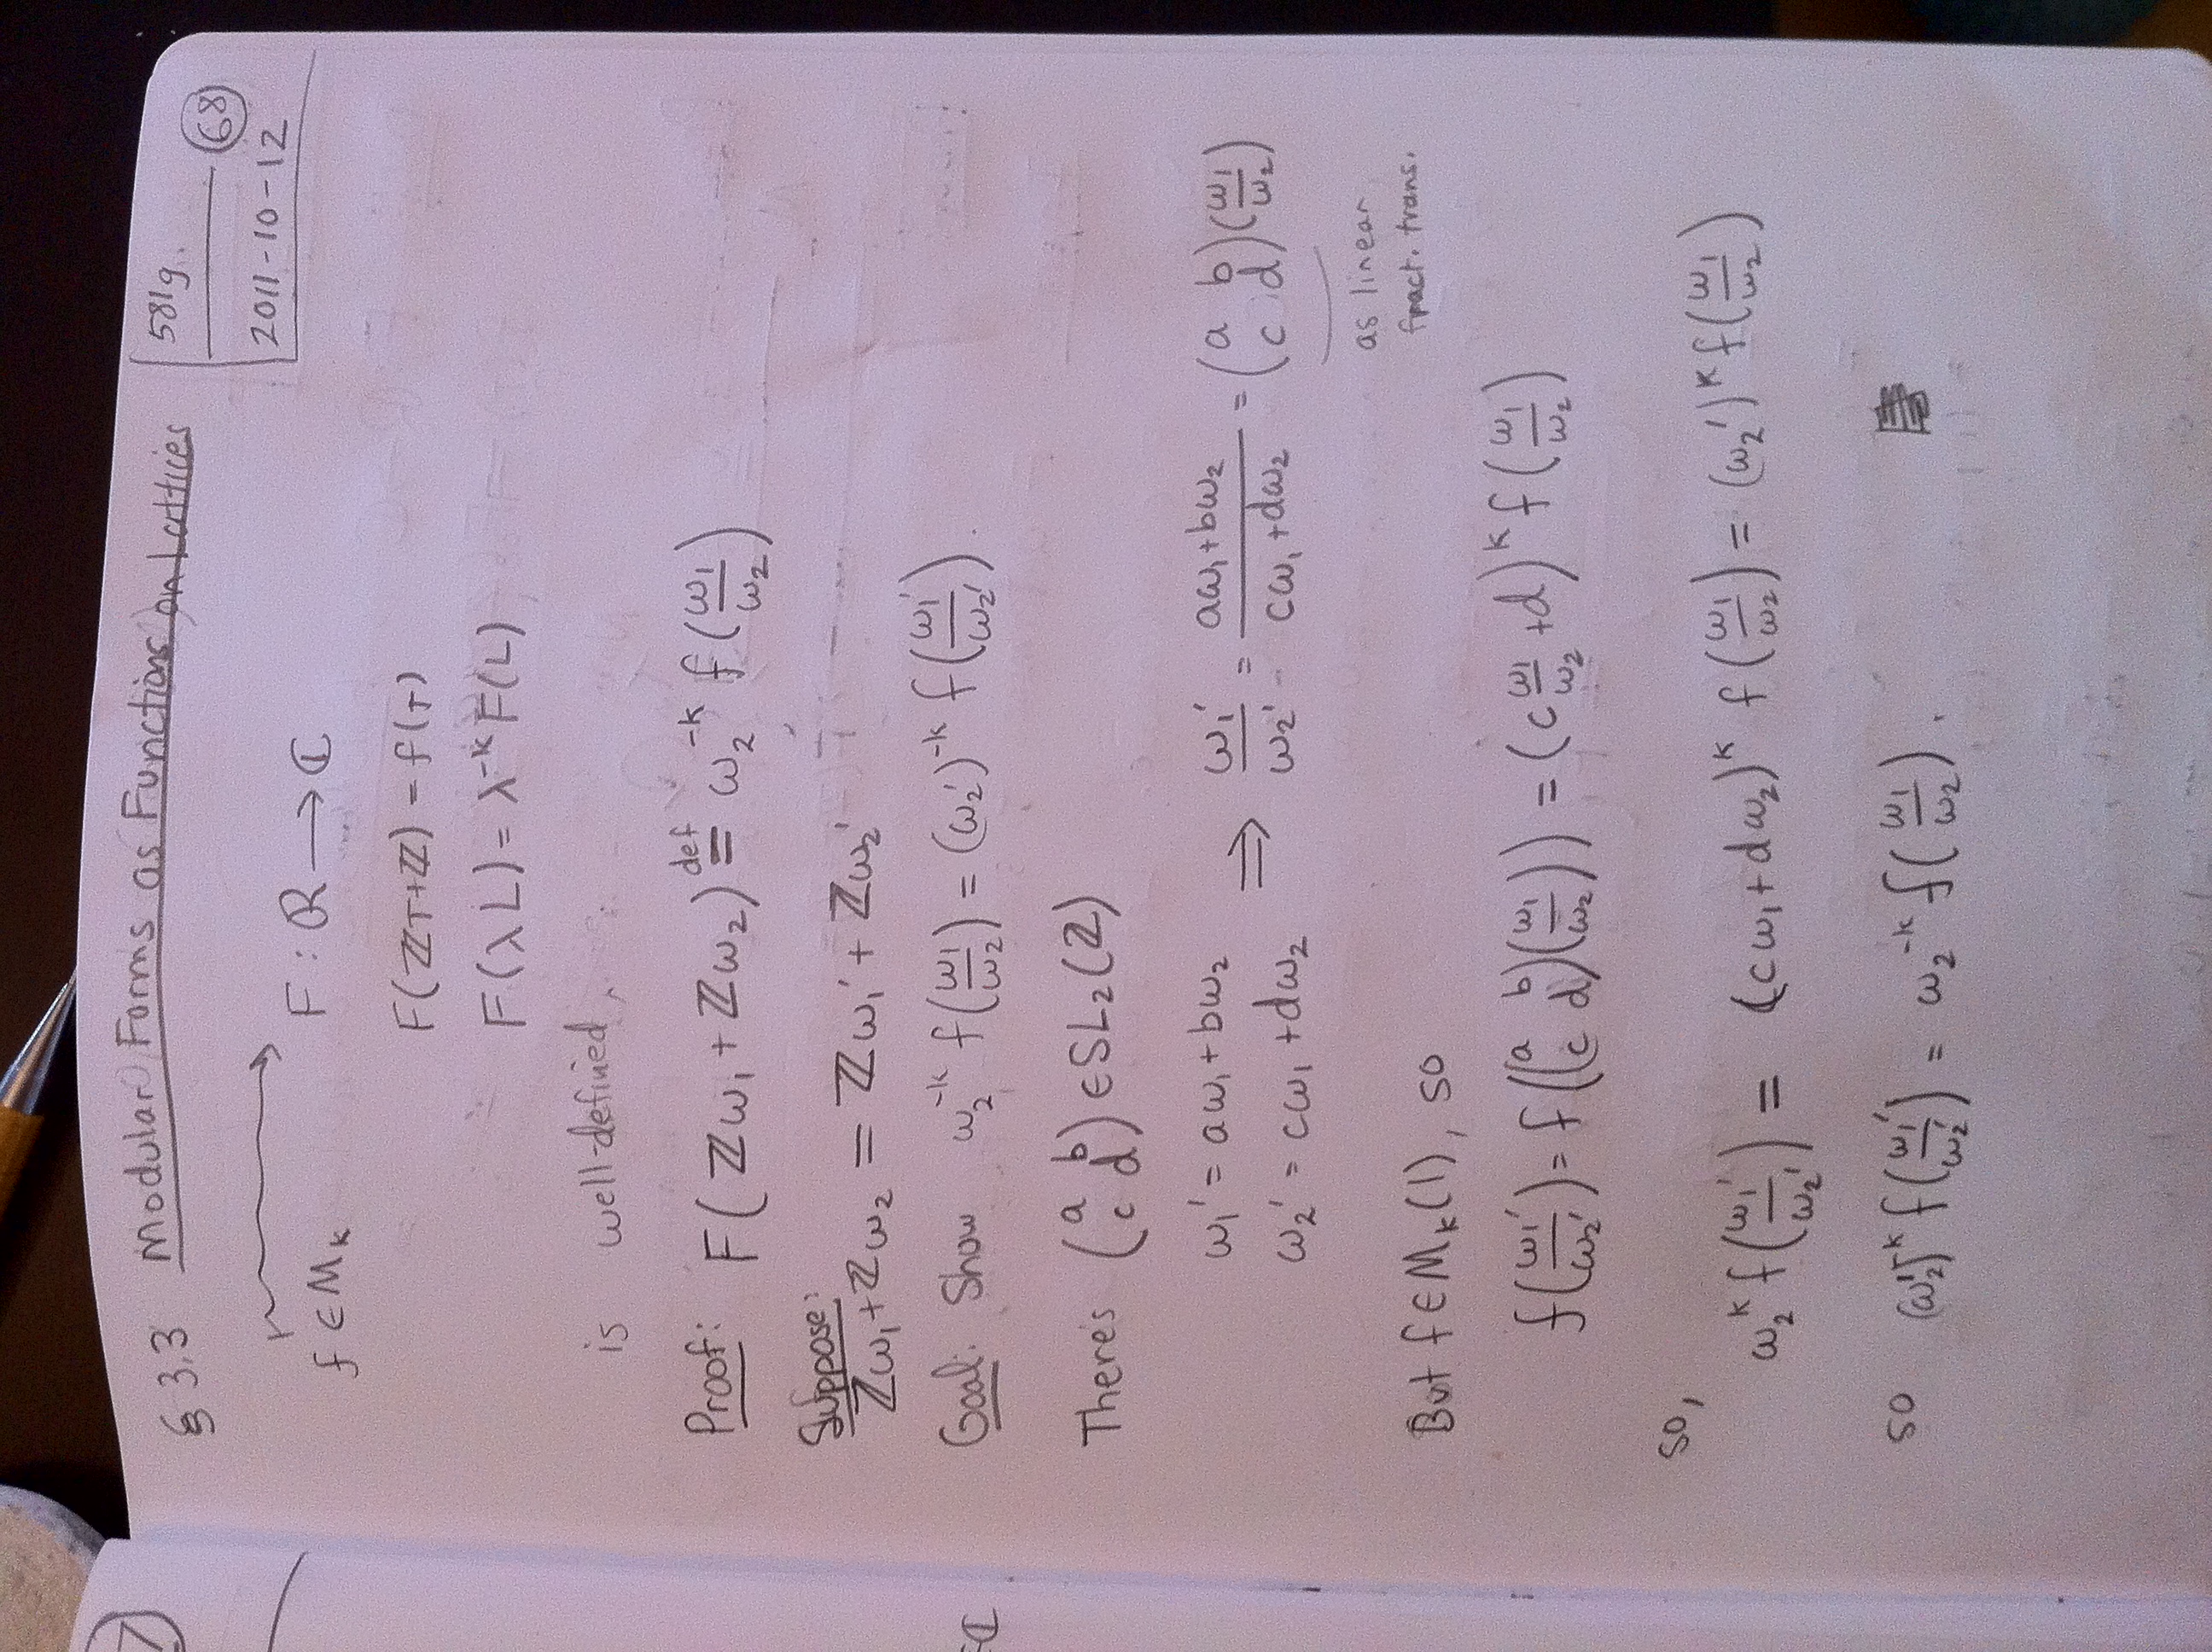 581g. 68
2011-10-12
§ 3.3 Modular Forms as Functions on Lattices
f ∈ M_k ⟿ F : R → ℂ
F(ℤτ+ℤ) = f(τ)
F(λL) = λ^{-k} F(L)
is well-defined.
Proof: F(ℤω₁ + ℤω₂) \stackrel{def}{=} ω₂^{-k} f(ω₁/ω₂)
Suppose:
ℤω₁+ℤω₂ = ℤω₁' + ℤω₂'
Goal: Show ω₂^{-k} f(ω₁/ω₂) = (ω₂')^{-k} f(ω₁'/ω₂').
There's (a b; c d) ∈ SL₂(ℤ)
ω₁' = aω₁ + bω₂
ω₂' = cω₁ + dω₂ ⟹ ω₁'/ω₂' = (aω₁+bω₂)/(cω₁+dω₂) = (a b; c d)(ω₁/ω₂)
as linear
fract. trans.
But f ∈ M_k(1), so
f(ω₁'/ω₂') = f((a b; c d)(ω₁/ω₂)) = (c ω₁/ω₂ + d)^k f(ω₁/ω₂)
so,
ω₂^k f(ω₁'/ω₂') = (cω₁ + dω₂)^k f(ω₁/ω₂) = (ω₂')^k f(ω₁/ω₂)
so (ω₂')^{-k} f(ω₁'/ω₂') = ω₂^{-k} f(ω₁/ω₂).